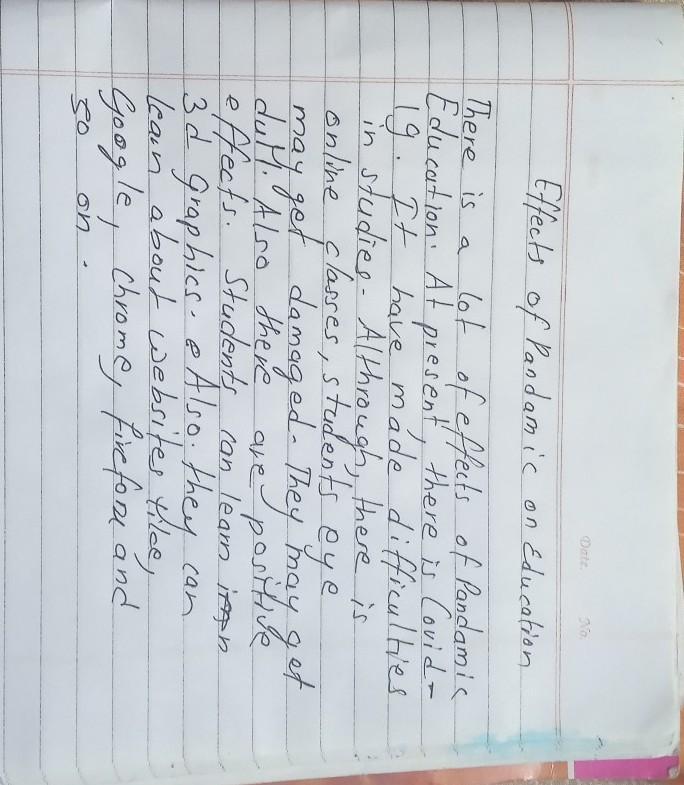 Date.
No.
Effects of Pandamic on Education
There is a lot of effects of Pandamic
Education. At present, there is Covid-
19. It have made difficulties
in studies. Althrough, there is
online classes, students eye
may get damaged. They may get
dull. Also there are positive
effects. Students can learn in
3d Graphics. Also. they can
learn about websites like,
Google, Chrome, firefox and
so on.